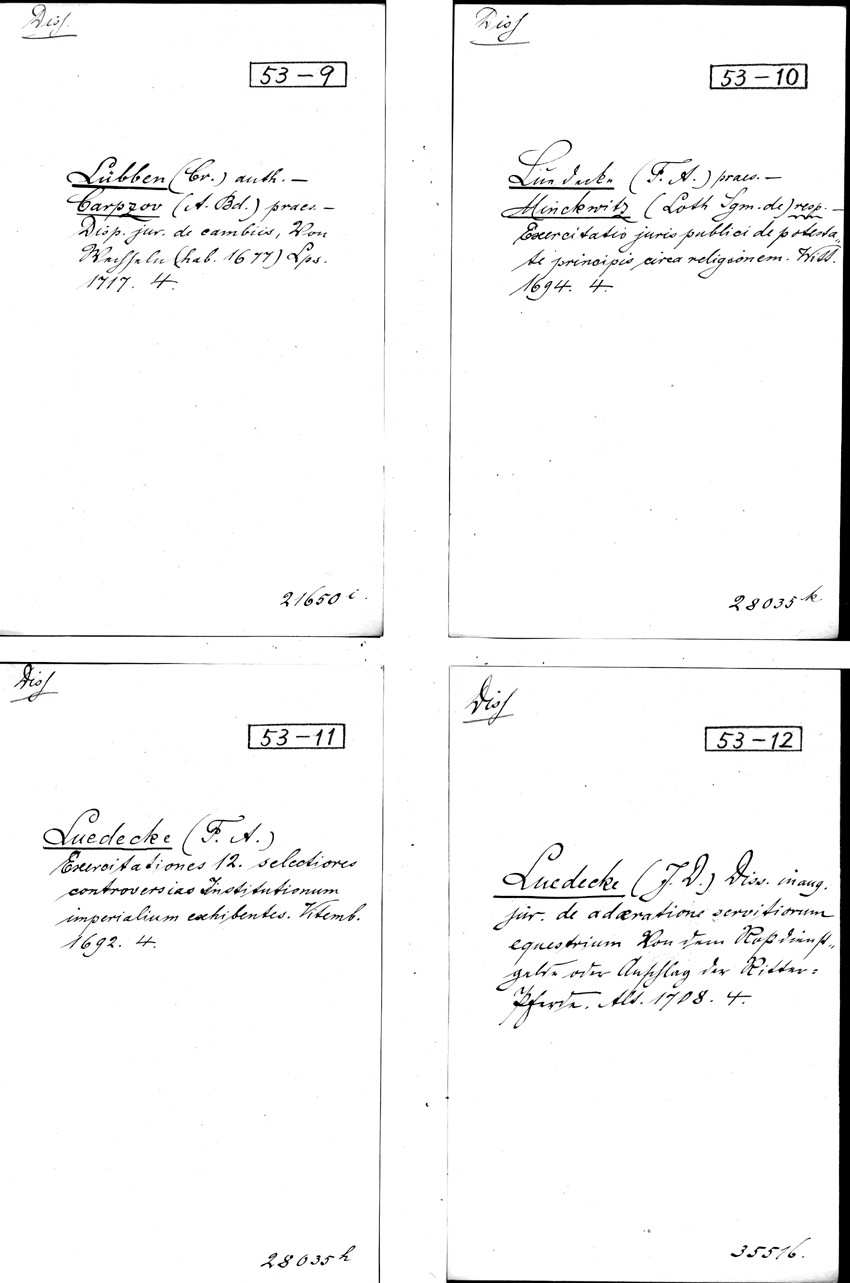 Diss.
53-9
Lübben (Cr.) auth. —
Carpzov (A. Bd.) praes. —
Disp. jur. de cambiis, Von
Wechseln (hab. 1677) Lps.
1717. 4.
21650 i.
Diss
53-10
Luedecke (F. A.) praes. —
Minckwitz (Loth Sgm. de) resp. —
Exercitatio juris publici de potesta„
te principis circa religionem. Witt.
1694. 4.
28035 k
Diss
53-11
Luedecke (F. A.)
Exercitationes 12. selectiores
controversias Institutionum
imperialium exhibentes. Vitemb.
1692. 4.
28035 h
Diss
53-12
Luedecke (J. D.) Diss. inaug.
jur. de adæratione servitiorum
equestrium Von dem Roßdienst„
gelde oder Anschlag der Ritter=
Pferde. Alt. 1708. 4.
35516.